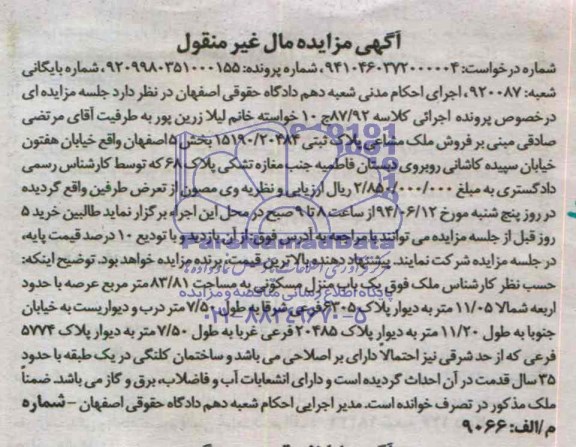 آگهی مزایده مال غیر منقول
شماره درخواست: ۹۴۱۰۴۶۰۳۷۲۰۰۰۰۰۴، شماره پرونده: ۹۲۰۹۹۸۰۳۵۱۰۰۰۱۵۵، شماره بایگانی
شعبه: ۹۲۰۰۸۷، اجرای احکام مدنی شعبه دهم دادگاه حقوقی اصفهان در نظر دارد جلسه مزایده ای
درخصوص پرونده اجرائی کلاسه ۸۷/۹۲ج ۱۰ خواسته خانم لیلا زرین پور به طرفیت آقای مرتضی
صادقی مبنی بر فروش ملک مشاعی پلاک ثبتی ۱۵۱۹۰/۲۰۴۸۴ بخش ۵ اصفهان واقع خیابان هفتون
خیابان سپیده کاشانی روبروی دبستان فاطمیه جنب مغازه تشکی پلاک ۶۸ که توسط کارشناس رسمی
دادگستری به مبلغ ۲/۸۵۰/۰۰۰/۰۰۰ ریال ارزیابی و نظریه وی مصون از تعرض طرفین واقع گردیده
در روز پنج شنبه مورخ ۹۴/۰۶/۱۲ از ساعت ۸ تا ۹ صبح در محل این اجراء برگزار نماید طالبین خرید ۵
روز قبل از جلسه مزایده می توانند با مراجعه به آدرس فوق از آن بازدید و با تودیع ۱۰ درصد قیمت پایه،
در جلسه مزایده شرکت نمایند. پیشنهاد دهنده بالاترین قیمت، برنده مزایده خواهد بود. توضیح اینکه:
حسب نظر کارشناس ملک فوق یک باب منزل مسکونی به مساحت ۸۳/۸۱ متر مربع عرصه با حدود
اربعه شمالا ۱۱/۰۵ متر به دیوار پلاک ۶۳۰۵ فرعی شرقا به طول ۷/۵۰ متر درب و دیواریست به خیابان
جنوبا به طول ۱۱/۲۰ متر به دیوار پلاک ۲۰۴۸۵ فرعی غربا به طول ۷/۵۰ متر به دیوار پلاک ۵۷۷۴
فرعی که از حد شرقی نیز احتمالا دارای بر اصلاحی می باشد و ساختمان کلنگی در یک طبقه با حدود
۳۵ سال قدمت در آن احداث گردیده است و دارای انشعابات آب و فاضلاب، برق و گاز می باشد. ضمناً
ملک مذکور در تصرف خوانده است. مدیر اجرایی احکام شعبه دهم دادگاه حقوقی اصفهان - شماره
م/الف: ۹۰۶۶
ParsNamadData
پایگاه اطلاع رسانی مناقصه و مزایده
۰۲۱-۸۸۳۴۹۶۷۰-۵